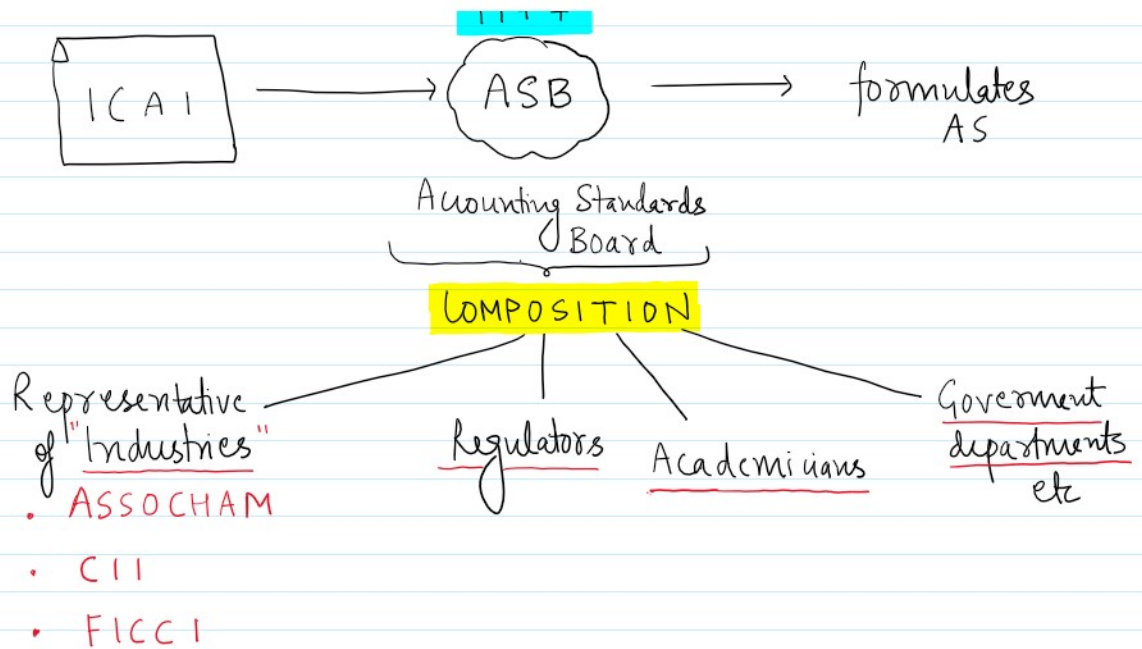 ICAI
ASB
formulates
AS
Accounting Standards
Board
COMPOSITION
Representative
of "Industries"
• ASSOCHAM
• CII
• FICCI
Regulators
Academicians
Goverment
departments
etc